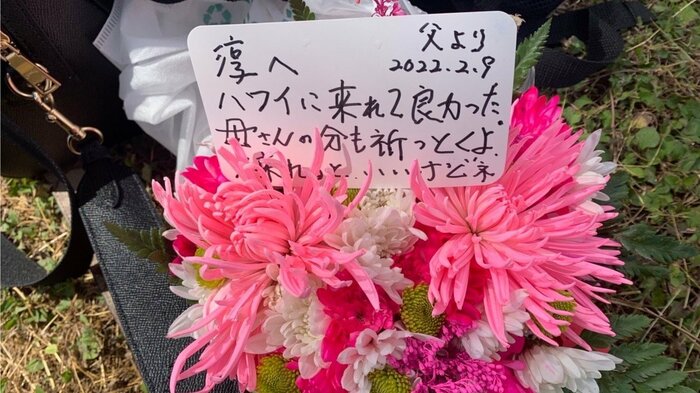 淳へ
父より
2022.2.9
ハワイに来れて良かった。
母さんの分も祈っとくよ。
れると、、、いいけどネ